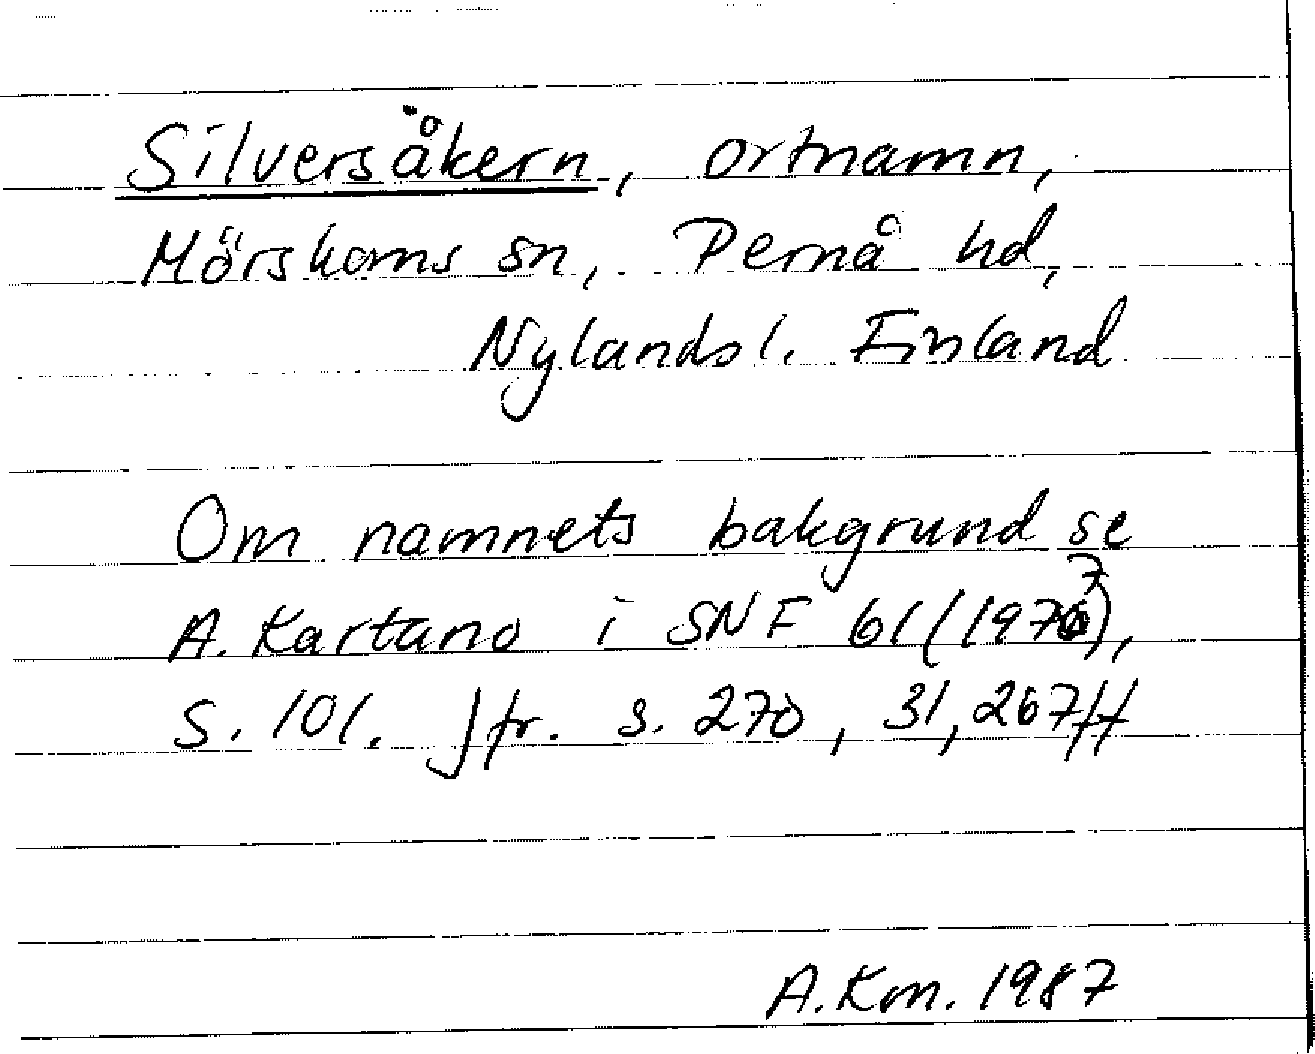 Silversåkern, ortnamn,
Mörskoms sn, Pernå hd,
Nylands l. Finland
Om namnets bakgrund se
A. Kartano i SNF 61 (1977),
s. 101. Jfr. s. 270, 31, 267ff
A.Km. 1987